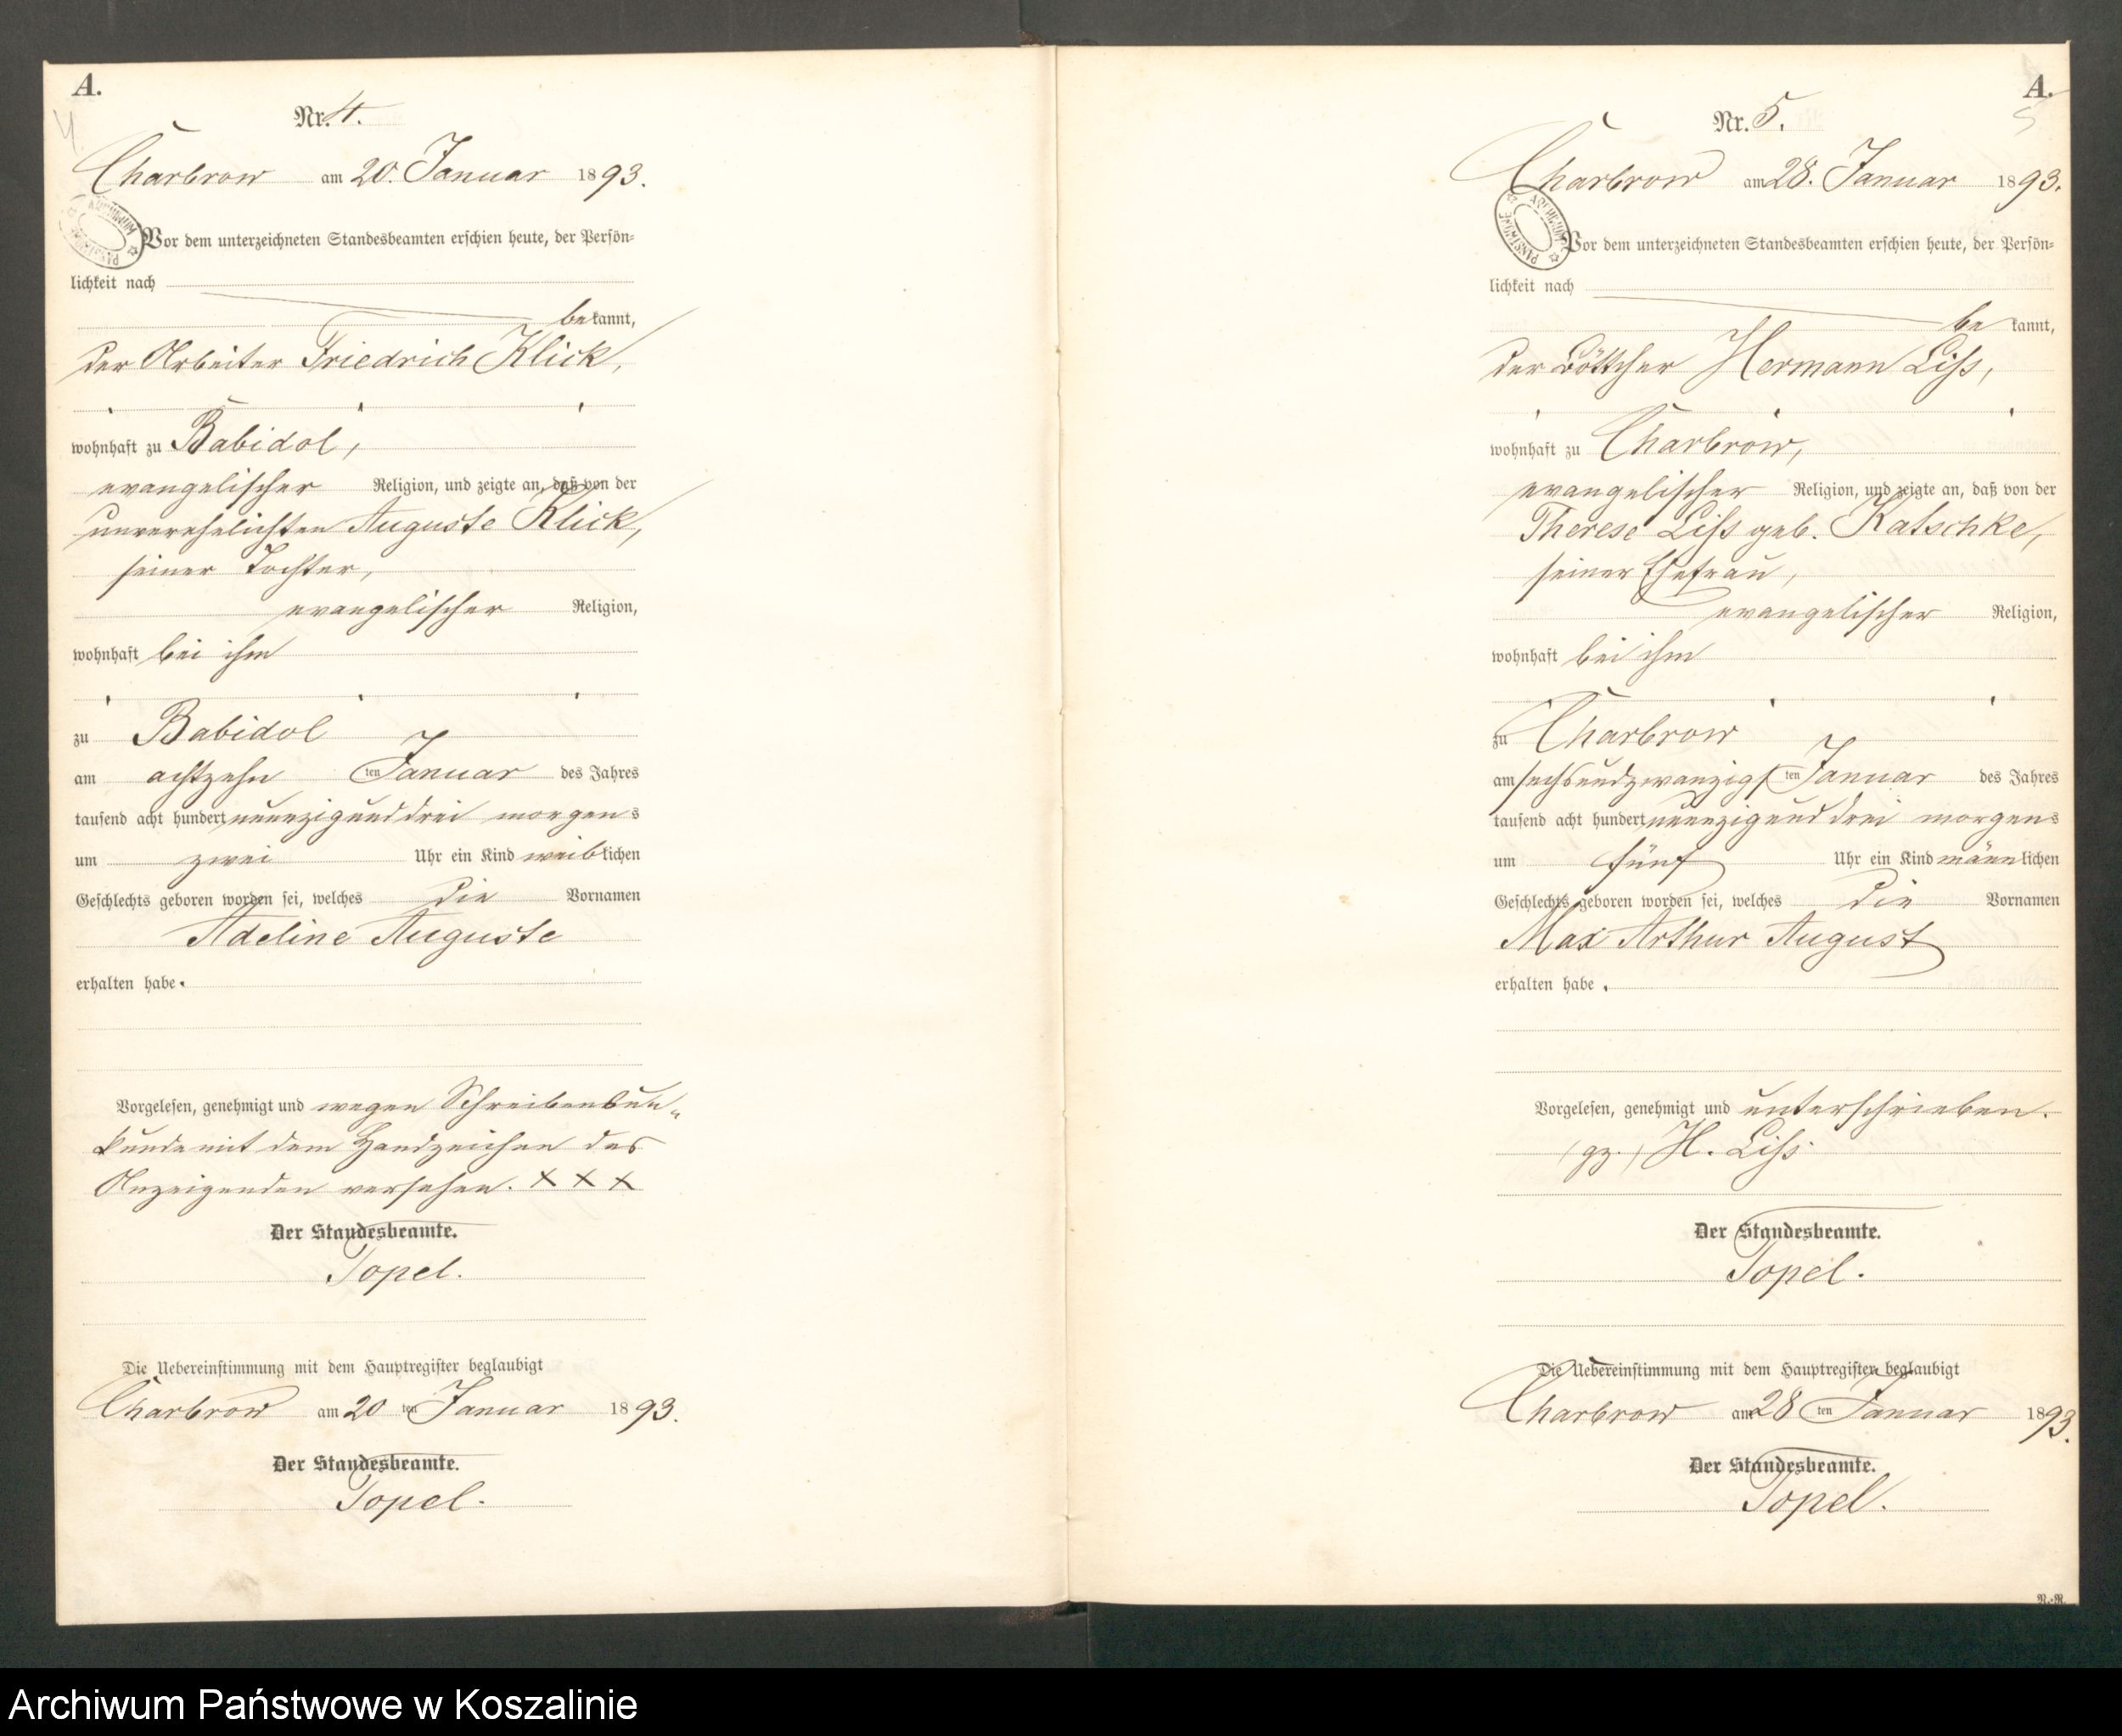 A.
4
Nr. 4.
Charbrow am 20. Januar 1893.
ARCHIWUM PAŃSTWOWE
Vor dem unterzeichneten Standesbeamten erschien heute, der Persön-
lichkeit nach
bekannt,
der Arbeiter Friedrich Klick,
wohnhaft zu Babidol,
evangelischer Religion, und zeigte an, daß von der
unverehelichten Auguste Klick,
seiner Tochter,
evangelischer Religion,
wohnhaft bei ihm
zu Babidol
am achtzehn ten Januar des Jahres
tausend acht hundert neunzig und drei morgens
um zwei Uhr ein Kind weiblichen
Geschlechts geboren worden sei, welches die Vornamen
Adeline Auguste
erhalten habe.
Vorgelesen, genehmigt und wegen Schreibensun-
kunde mit dem Handzeichen des
Anzeigenden versehen. X X X
Der Standesbeamte.
Topel.
Die Uebereinstimmung mit dem Hauptregister beglaubigt
Charbrow am 20 ten Januar 1893.
Der Standesbeamte.
Topel.
A.
5
Nr. 5.
Charbrow am 28. Januar 1893.
ARCHIWUM PAŃSTWOWE
Vor dem unterzeichneten Standesbeamten erschien heute, der Persön-
lichkeit nach
bekannt,
der Böttcher Hermann Liss,
wohnhaft zu Charbrow,
evangelischer Religion, und zeigte an, daß von der
Therese Liss geb. Katschke,
seiner Ehefrau,
evangelischer Religion,
wohnhaft bei ihm
zu Charbrow
am sechsundzwanzigsten Januar des Jahres
tausend acht hundert neunzig und drei morgens
um fünf Uhr ein Kind männlichen
Geschlechts geboren worden sei, welches die Vornamen
Max Arthur August
erhalten habe.
Vorgelesen, genehmigt und unterschrieben.
(gz.) H. Liss
Der Standesbeamte.
Topel.
Die Uebereinstimmung mit dem Hauptregister beglaubigt
Charbrow am 28 ten Januar 1893.
Der Standesbeamte.
Topel.
R.-R.
Archiwum Państwowe w Koszalinie